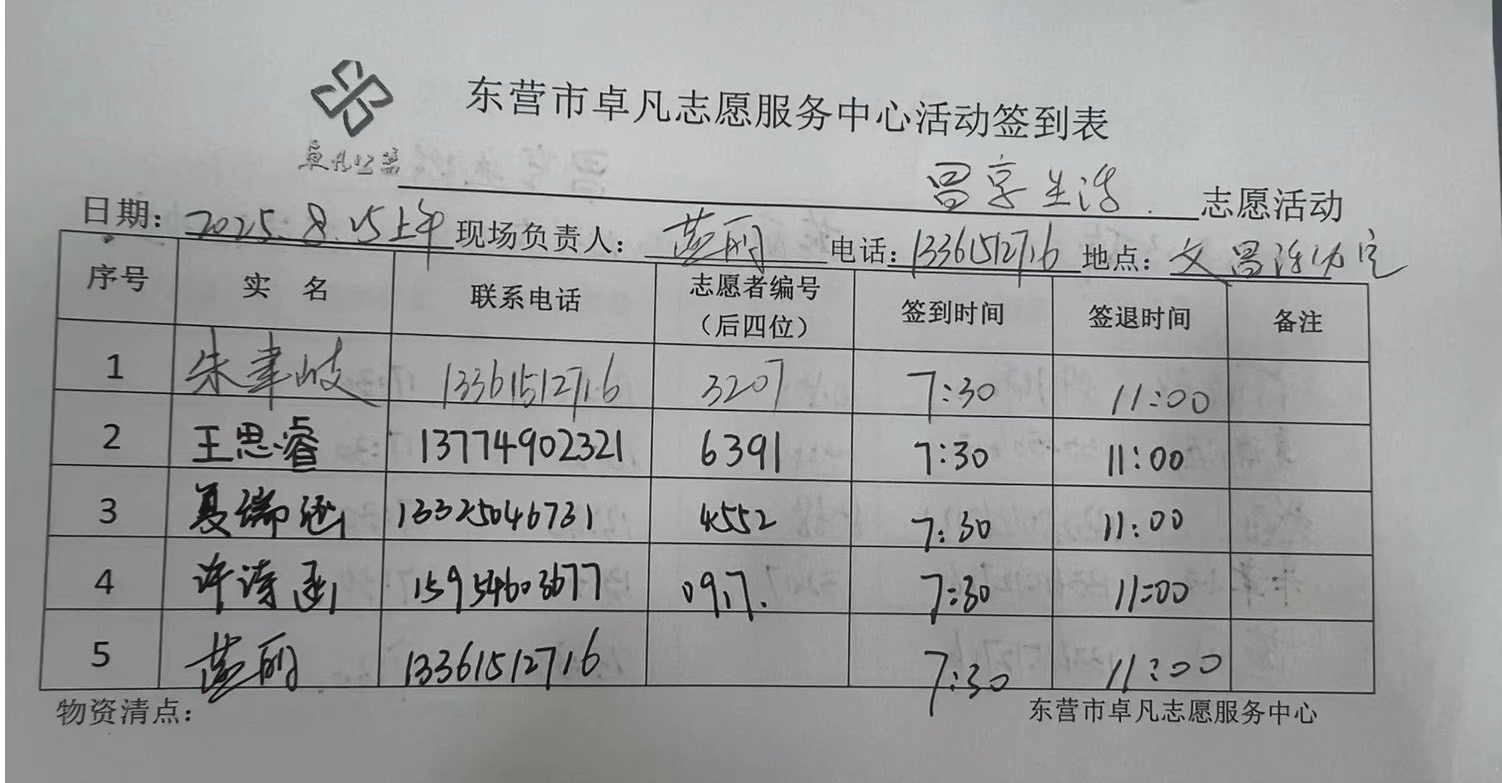 东营市卓凡志愿服务中心活动签到表
卓凡公益
昌享生活 志愿活动
日期: 2025.8.15上午 现场负责人: 丽 电话: 13361512716 地点: 文昌活动室
序号 实 名 联系电话 志愿者编号 (后四位) 签到时间 签退时间 备注
1 朱聿岐 13361512716 3207 7:30 11:00
2 王思睿 13774902321 6391 7:30 11:00
3 夏瑞涵 13325046731 4552 7:30 11:00
4 许诗函 15954603677 0917. 7:30 11:00
5 丽 13361512716 7:30 11:00
物资清点: 东营市卓凡志愿服务中心